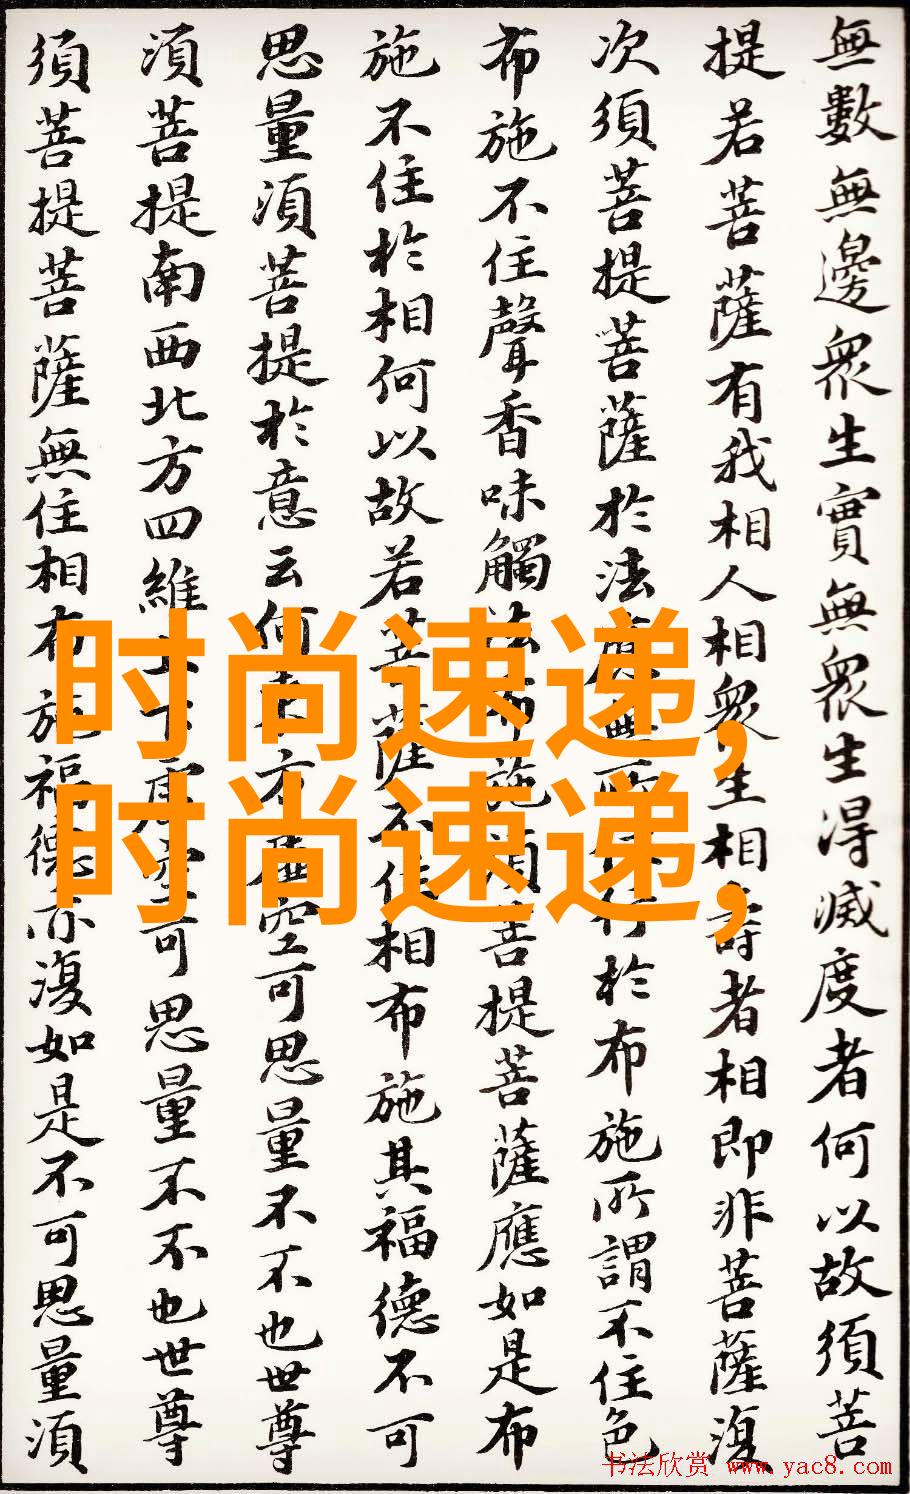 無數無邊衆生實無衆生得滅度者何以故須菩
提若菩薩有我相人相衆生相壽者相即非菩薩復
次須菩提菩薩於法應無所住行於布施所謂不住色
布施不住聲香味觸法布施須菩提菩薩應如是布
施不住於相何以故若菩薩不住相布施其福德不可
思量須菩提於意云何東方虛空可思量不不也世尊
須菩提南西北方四維上下虛空可思量不不也世尊
須菩提菩薩無住相布施福德亦復如是不可思量須
时尚速递,
时尚速递,
书法欣赏 www.yac8.com